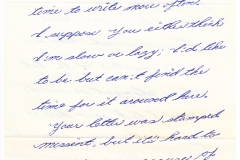 time to write more often.
I suppose you either think
I'm slow or lazy; I'd like
to be but can't find the
time for it around here.
Your letter was stamped
missent, but it's hard to
of